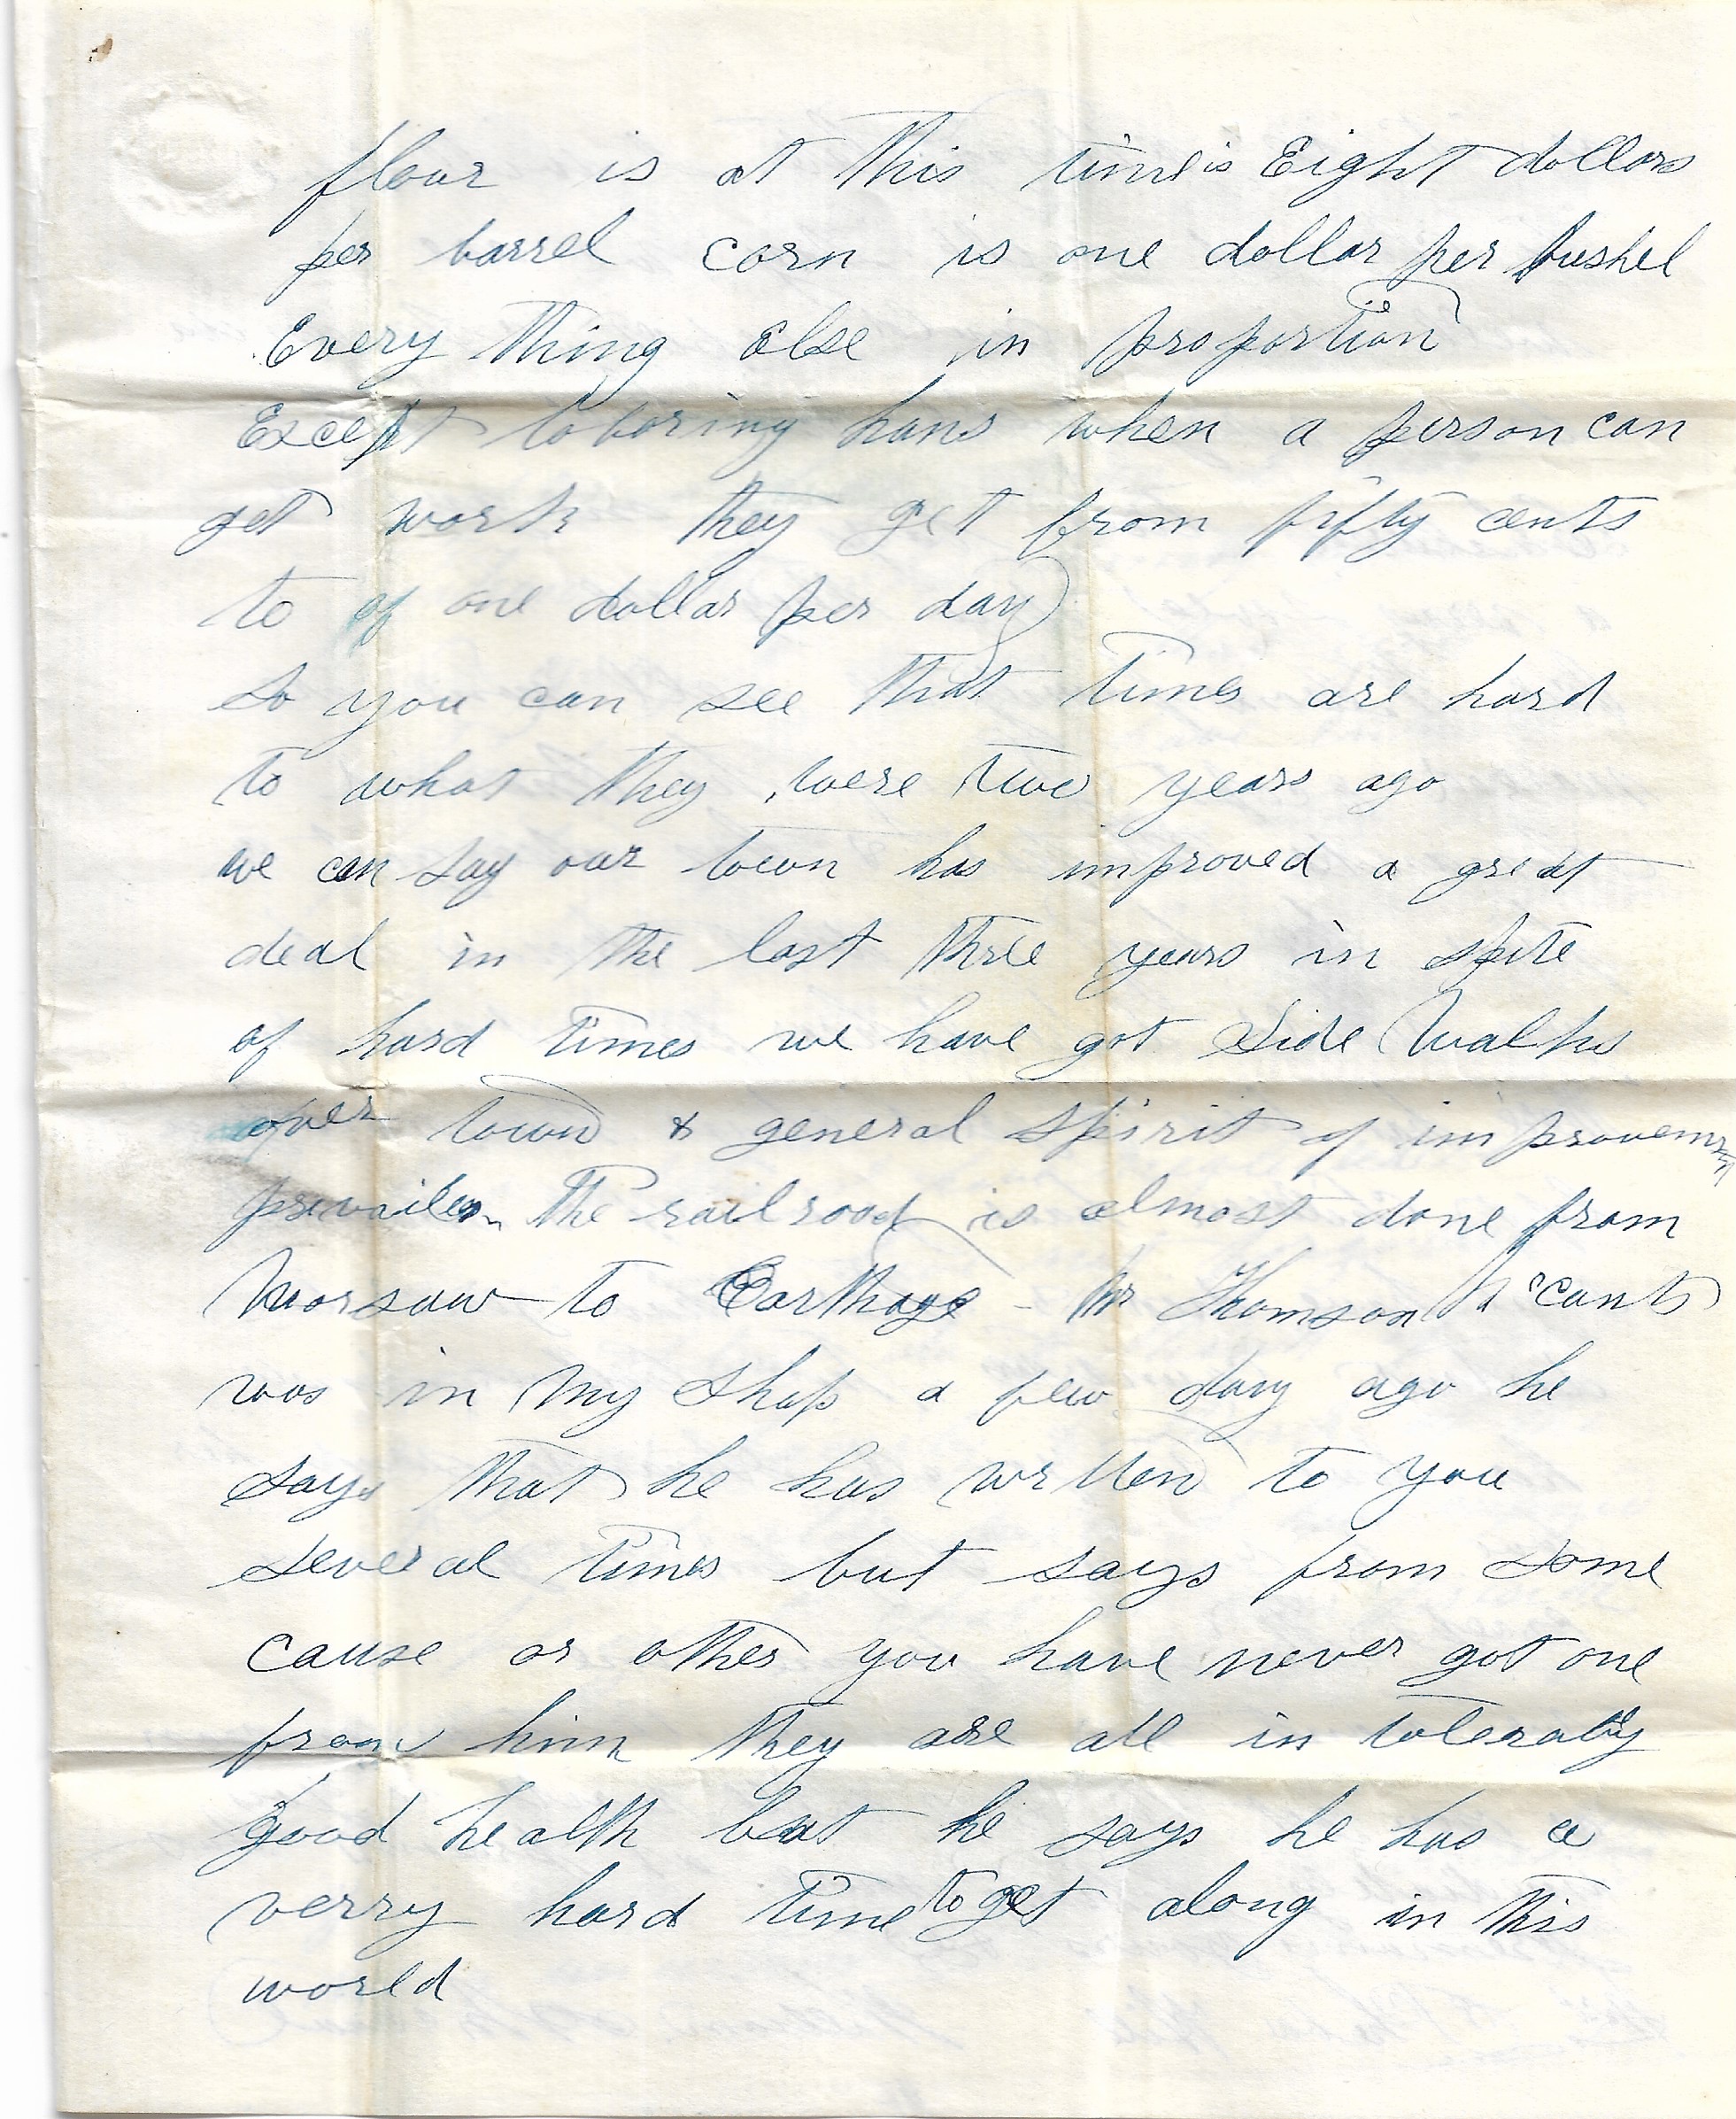 flour is at this time is Eight dollars
per barrel corn is one dollar per bushel
Every thing else in proportion
Except laboring hans when a person can
get work they get from fifty cents
to of one dollar per day
So you can see that times are hard
to what they were two years ago
we can say our town has improved a great
deal in the last three years in spite
of hard times we have got Side Walks
over town & general spirit of improvement
prevailes The railroad is almost done from
Warsaw to Carthage - Mr Thomson
was in my shop a few day ago he
says that he has written to you
several times but says from some
cause or other you have never got one
from him they are all in toleraby
good health but he says he has a
verry hard time to get along in this
world